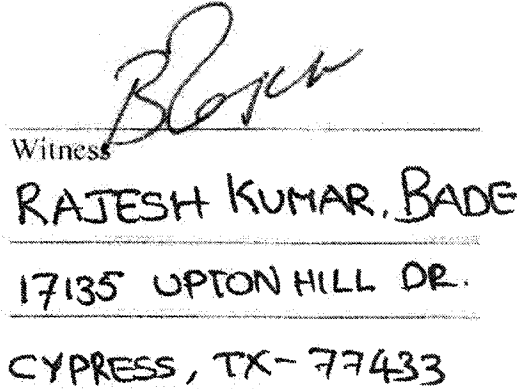 Witness
RAJESH KUMAR. BADE
17135 UPTON HILL DR.
CYPRESS, TX- 77433